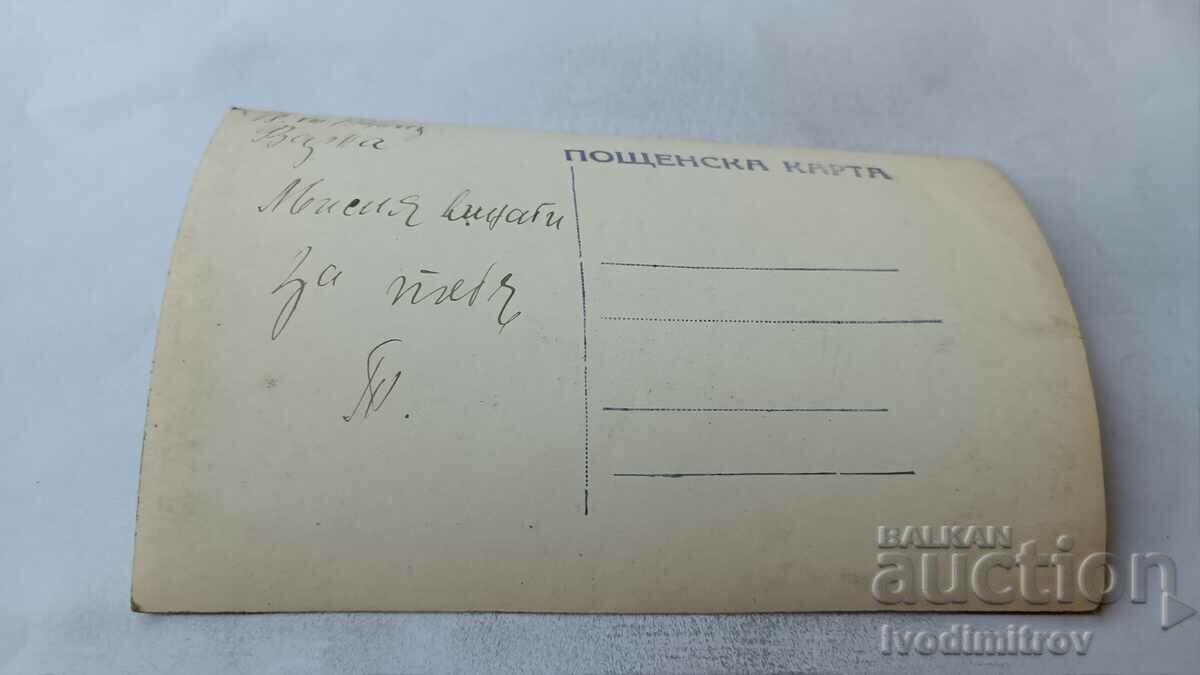 Варна
Мисля винаги
за тебе
ПОЩЕНСКА КАРТА
BALKAN
auction
Ivodimitrov